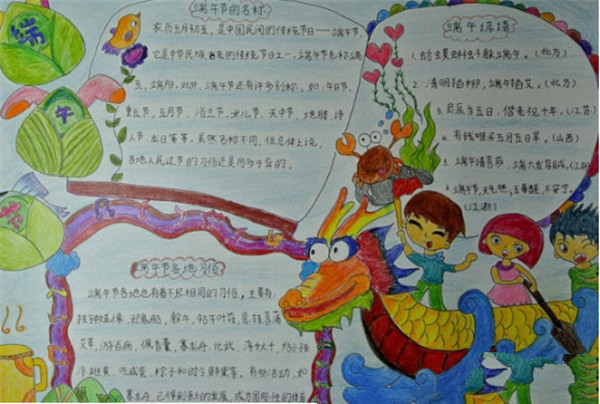 端午节的名称
农历五月初五，是中国民间的传统节日——端午节，
它是中华民族古老的传统节日之一。端午节也称端
五，端阳。此外，端午节还有许多别称，如：午日节、
重五节，五月节，浴兰节，女儿节，天中节、地腊、诗
人节、龙日等等。虽然名称不同，但总体上说，
各地人民过节的习俗还是同多于异的。
端午谚语
（北方）
2. 清明插柳，端午插艾。（北方）
3. 良辰当五日，偕老祝千年。（江苏）
4. 有钱难买五月五日旱。（山西）
5. 端午请菩萨，端六发乌贼。（江浙）
6. 端午节，天气热，五毒醒，不安宁。
（江浙）
端
午
节
端午节各地习俗
端午节各地也有着不尽相同的习俗，主要有：
挂钟馗像，迎鬼船，躲午，帖午叶符，悬挂菖蒲
艾草，游百病，佩香囊，赛龙舟，比武，荡秋千，给小孩
涂雄黄，吃咸蛋，粽子和时令鲜果等，有些活动，如
赛龙舟，已得到新的发展，成为国际性的体育